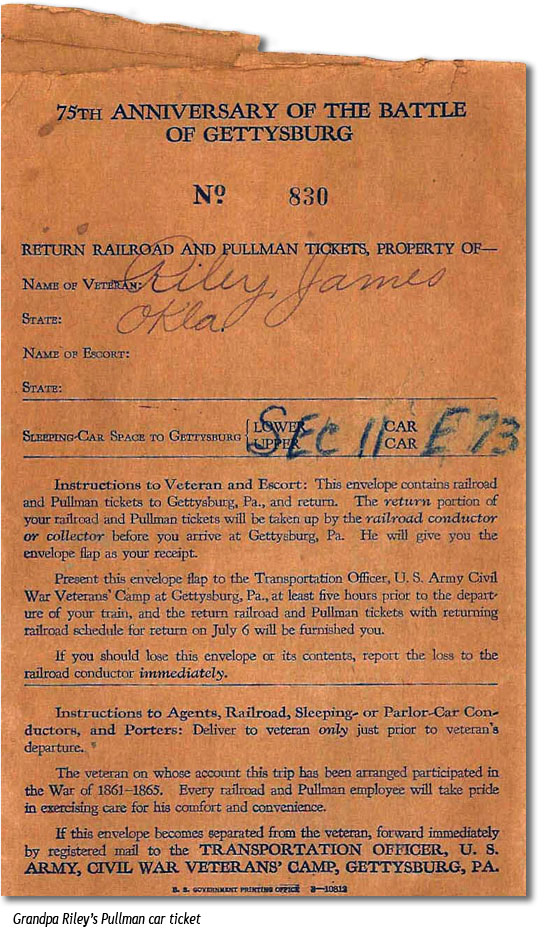 75TH ANNIVERSARY OF THE BATTLE
OF GETTYSBURG
No 830
RETURN RAILROAD AND PULLMAN TICKETS, PROPERTY OF—
NAME OF VETERAN: Riley, James
STATE: Okla.
NAME OF ESCORT:
STATE:
SLEEPING-CAR SPACE TO GETTYSBURG { LOWER CAR
UPPER CAR
SEC 11 E 73
Instructions to Veteran and Escort: This envelope contains railroad
and Pullman tickets to Gettysburg, Pa., and return. The return portion of
your railroad and Pullman tickets will be taken up by the railroad conductor
or collector before you arrive at Gettysburg, Pa. He will give you the
envelope flap as your receipt.
Present this envelope flap to the Transportation Officer, U. S. Army Civil
War Veterans' Camp at Gettysburg, Pa., at least five hours prior to the depart-
ure of your train, and the return railroad and Pullman tickets with returning
railroad schedule for return on July 6 will be furnished you.
If you should lose this envelope or its contents, report the loss to the
railroad conductor immediately.
Instructions to Agents, Railroad, Sleeping- or Parlor-Car Con-
ductors, and Porters: Deliver to veteran only just prior to veteran's
departure.
The veteran on whose account this trip has been arranged participated in
the War of 1861–1865. Every railroad and Pullman employee will take pride
in exercising care for his comfort and convenience.
If this envelope becomes separated from the veteran, forward immediately
by registered mail to the TRANSPORTATION OFFICER, U. S.
ARMY, CIVIL WAR VETERANS' CAMP, GETTYSBURG, PA.
U. S. GOVERNMENT PRINTING OFFICE 3—10812
Grandpa Riley's Pullman car ticket